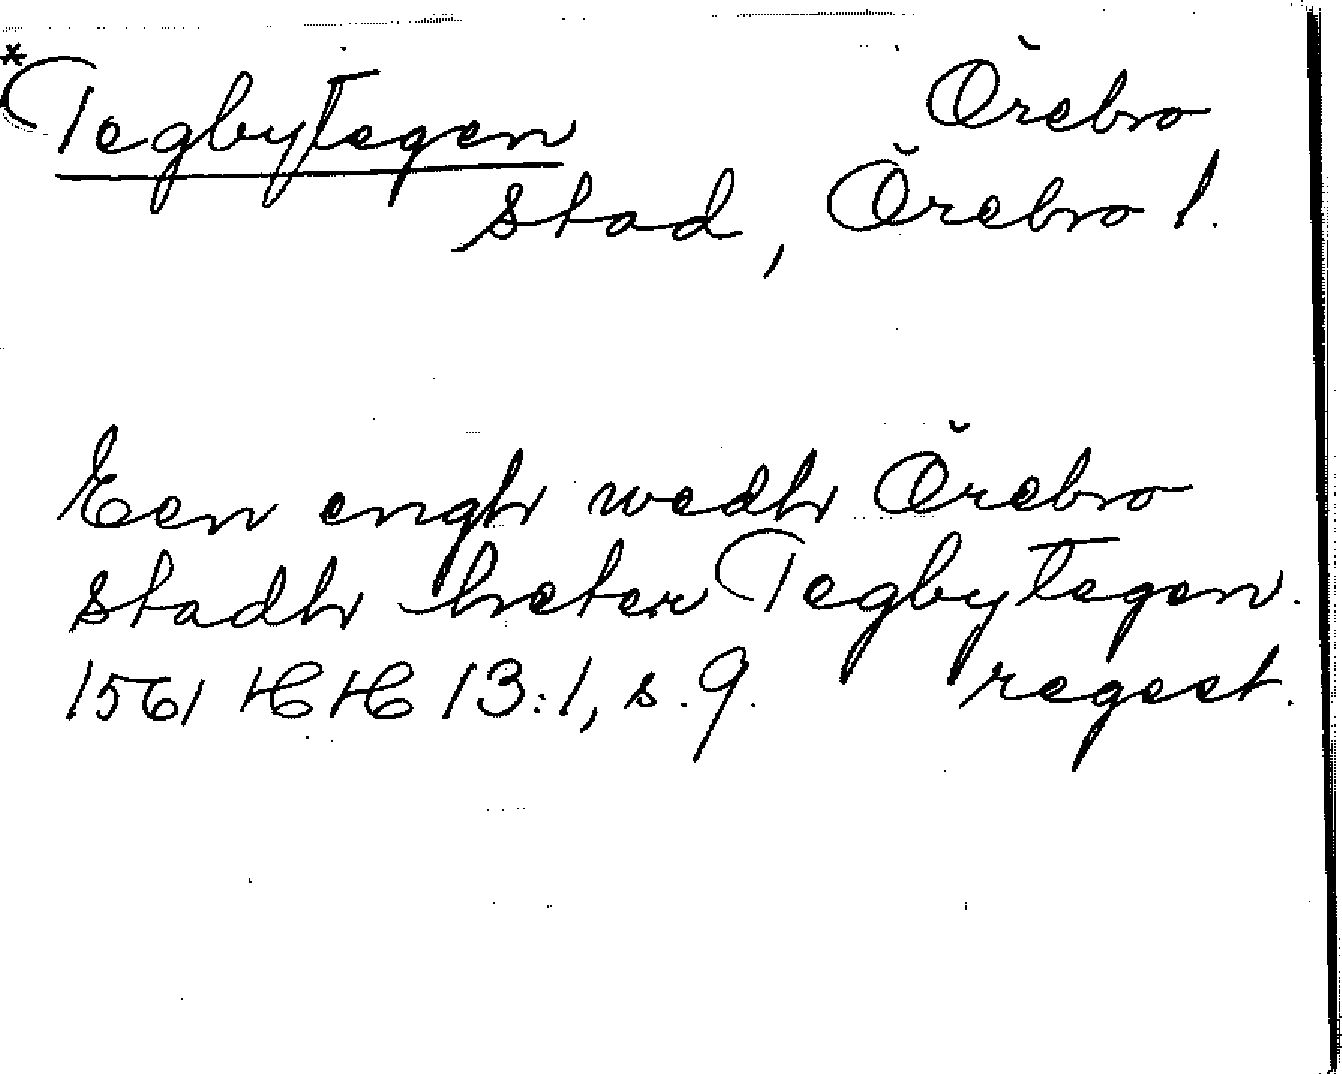 *Tegbytegen Örebro
stad, Örebro l.
Een engh wedh Örebro
stadh heter Tegbytegen.
1561 HH 13:1, s. 9. regest.